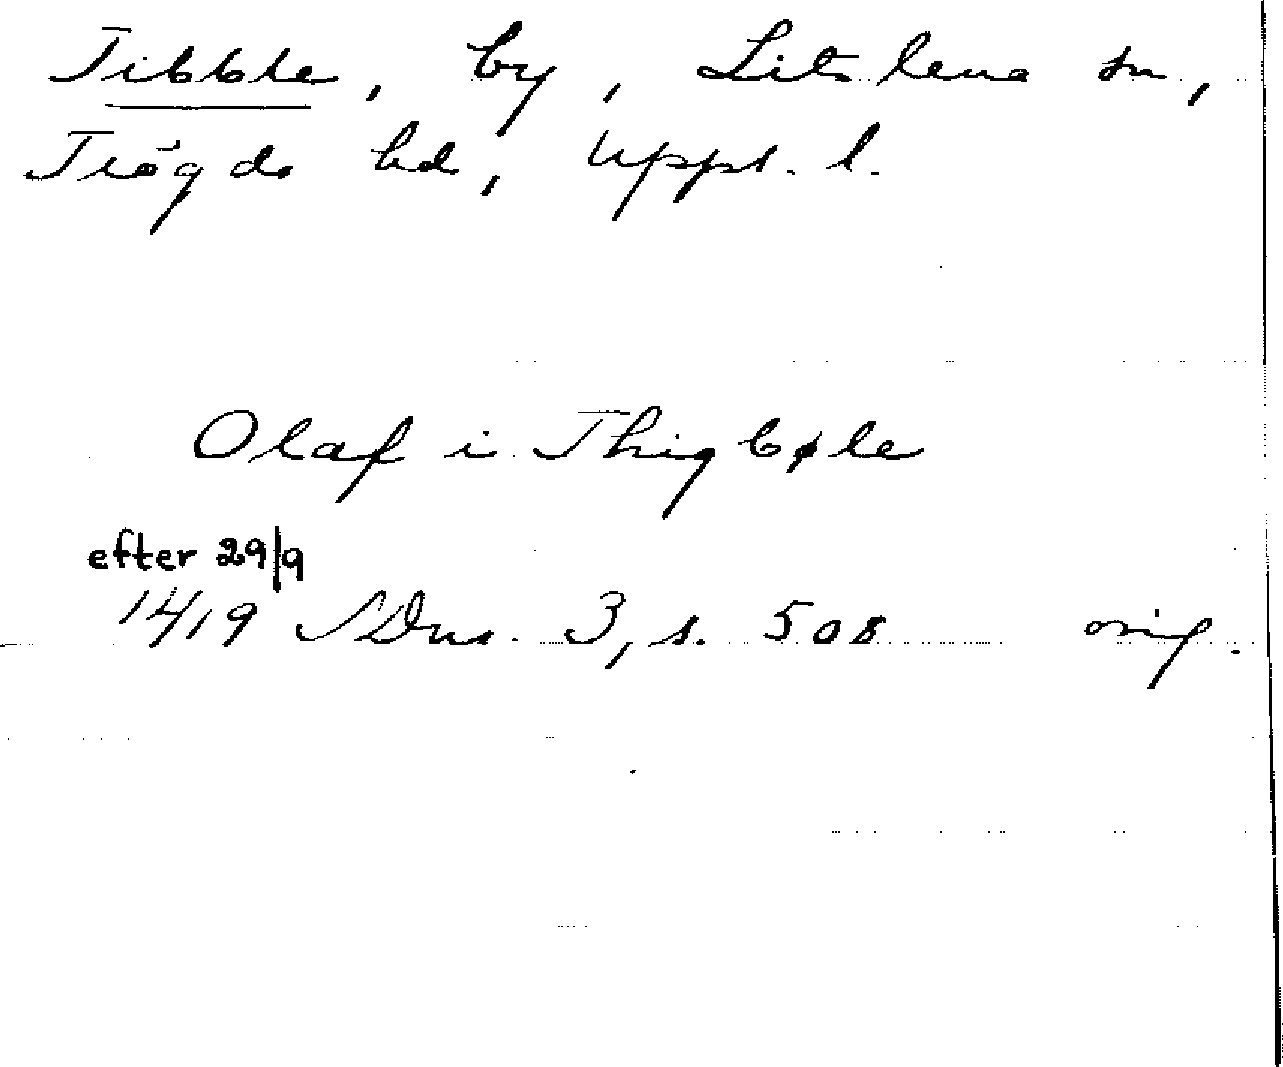 Tibble, by, Litslena sn,
Trögds hd, Uppl. l.
Olaf i Thigbøle
efter 29/9
1419 SDns. 3, s. 508 orig.